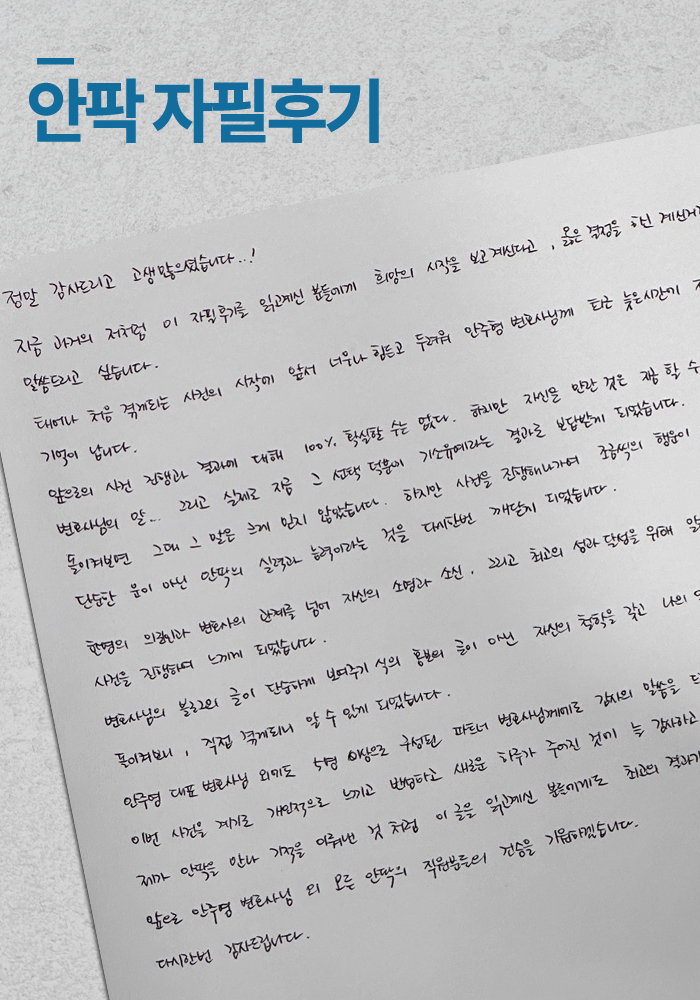 안팍 자필후기
정말 감사드리고 고생많으셨습니다...!
지금 과거의 저처럼 이 자필후기를 읽고계신 분들에게 희망의 시작을 보고계신다고, 옳은 결정을 하신 계신거
말씀드리고 싶습니다.
태어나 처음 겪게되는 사건의 시작에 앞서 너무나 힘들고 두려워 안주영 변호사님께 퇴근 늦은시간에
기억이 납니다.
앞으로의 사건 진행과 결과에 대해 100% 확실할 수는 없다. 하지만 자신을 만난 것은 할 수
변호사님의 말... 그리고 실제로 지금 그 선택 덕분에 기소유예라는 결과로 보답받게 되었습니다.
돌이켜보면 그때 그 말은 크게 믿지 않았습니다. 하지만 사건을 진행해나가며 조금씩의 행운이
단순한 운이 아닌 안팍의 실력과 능력이라는 것을 다시한번 깨닫게 되었습니다.
한명의 의뢰인과 변호사의 관계를 넘어 자신의 소명과 소신, 그리고 최고의 성과 달성을 위해
사건을 진행하며 느끼게 되었습니다.
변호사님의 블로그의 글이 단순하게 보여주기 식의 홍보의 글이 아닌 자신의 철학을 갖고 나의
돌이켜보니, 직접 겪게되니 알 수 있게 되었습니다.
안주영 대표 변호사님 외에도 5명 이상으로 구성된 파트너 변호사님께에도 감사의 말씀을
이번 사건을 계기로 개인적으로 느끼고 반성하고 새로운 하루가 주어진 것에 늘 감사하고
제가 안팍을 만나 기적을 이뤄낸 것 처럼 이 글을 읽고계신 분들에게도 최고의 결과가
앞으로 안주영 변호사님 외 모든 안팍의 직원분들의 건승을 기원하겠습니다.
다시한번 감사드립니다.